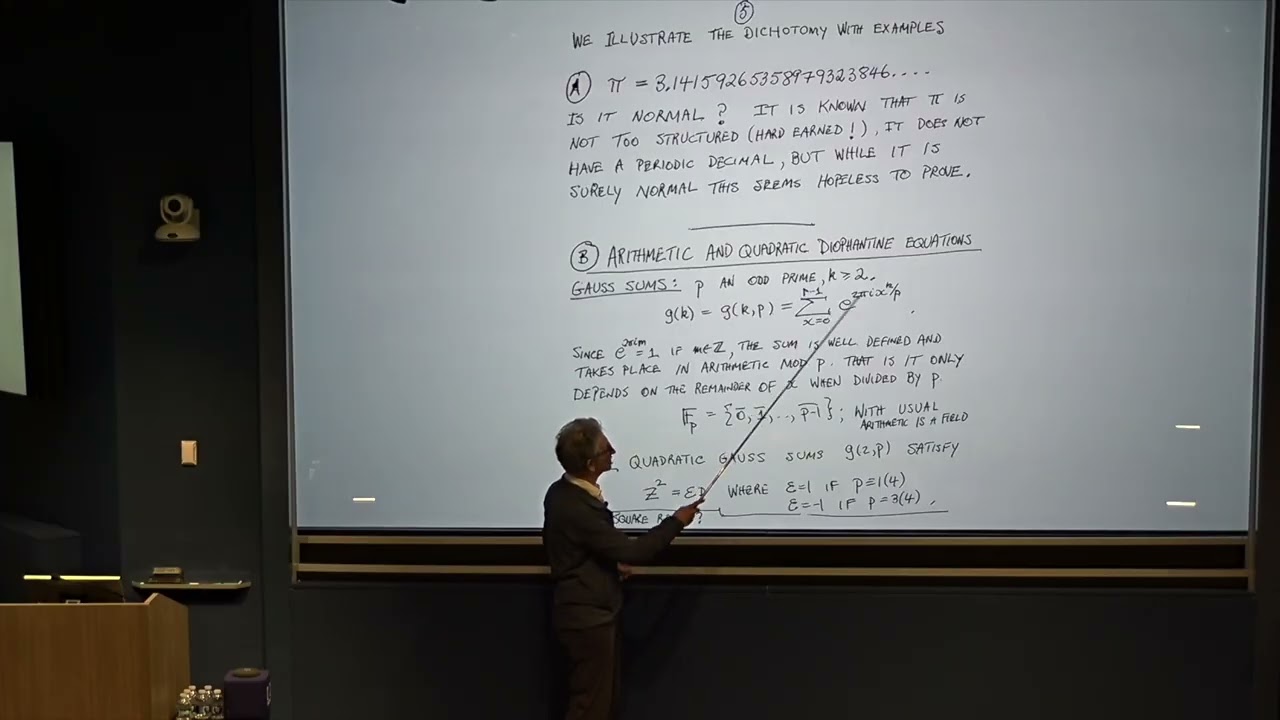 ⑤
WE ILLUSTRATE THE DICHOTOMY WITH EXAMPLES
Ⓐ π = 3.14159265358979323846....
IS IT NORMAL? IT IS KNOWN THAT π IS
NOT TOO STRUCTURED (HARD EARNED!), IT DOES NOT
HAVE A PERIODIC DECIMAL, BUT WHILE IT IS
SURELY NORMAL THIS SEEMS HOPELESS TO PROVE.
Ⓑ ARITHMETIC AND QUADRATIC DIOPHANTINE EQUATIONS
GAUSS SUMS: p AN ODD PRIME, k ≥ 2.
g(k) = g(k,p) = ∑_{x=0}^{p-1} e^{2πi x^k/p}.
SINCE e^{2πim} = 1 IF m∈ℤ, THE SUM IS WELL DEFINED AND
TAKES PLACE IN ARITHMETIC MOD p. THAT IS IT ONLY
DEPENDS ON THE REMAINDER OF x WHEN DIVIDED BY p.
𝔽_p = {0̄, 1̄, .., p̄-̄1̄}; WITH USUAL
ARITHMETIC IS A FIELD
QUADRATIC GAUSS SUMS g(2,p) SATISFY
Z² = εp WHERE ε=1 IF p≡1(4)
ε=-1 IF p≡3(4).
SQUARE ?